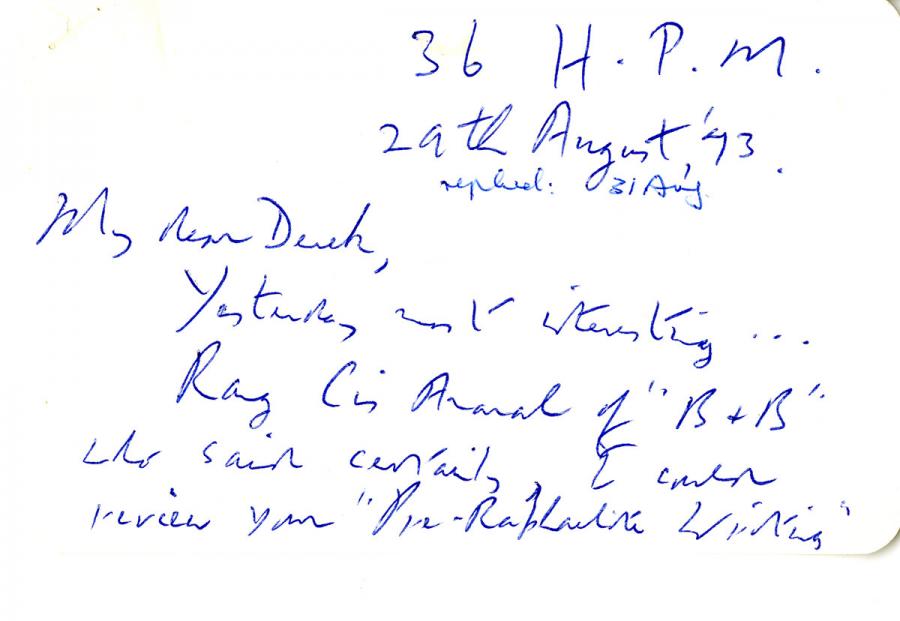 36 H.P.M.
29th August, '93.
replied: 31 Aug.
My dear Derek,
Yesterday most interesting ...
Rang Cis Amaral of "B + B"
who said certainly, I could
review your "Pre-Raphaelite Writing"